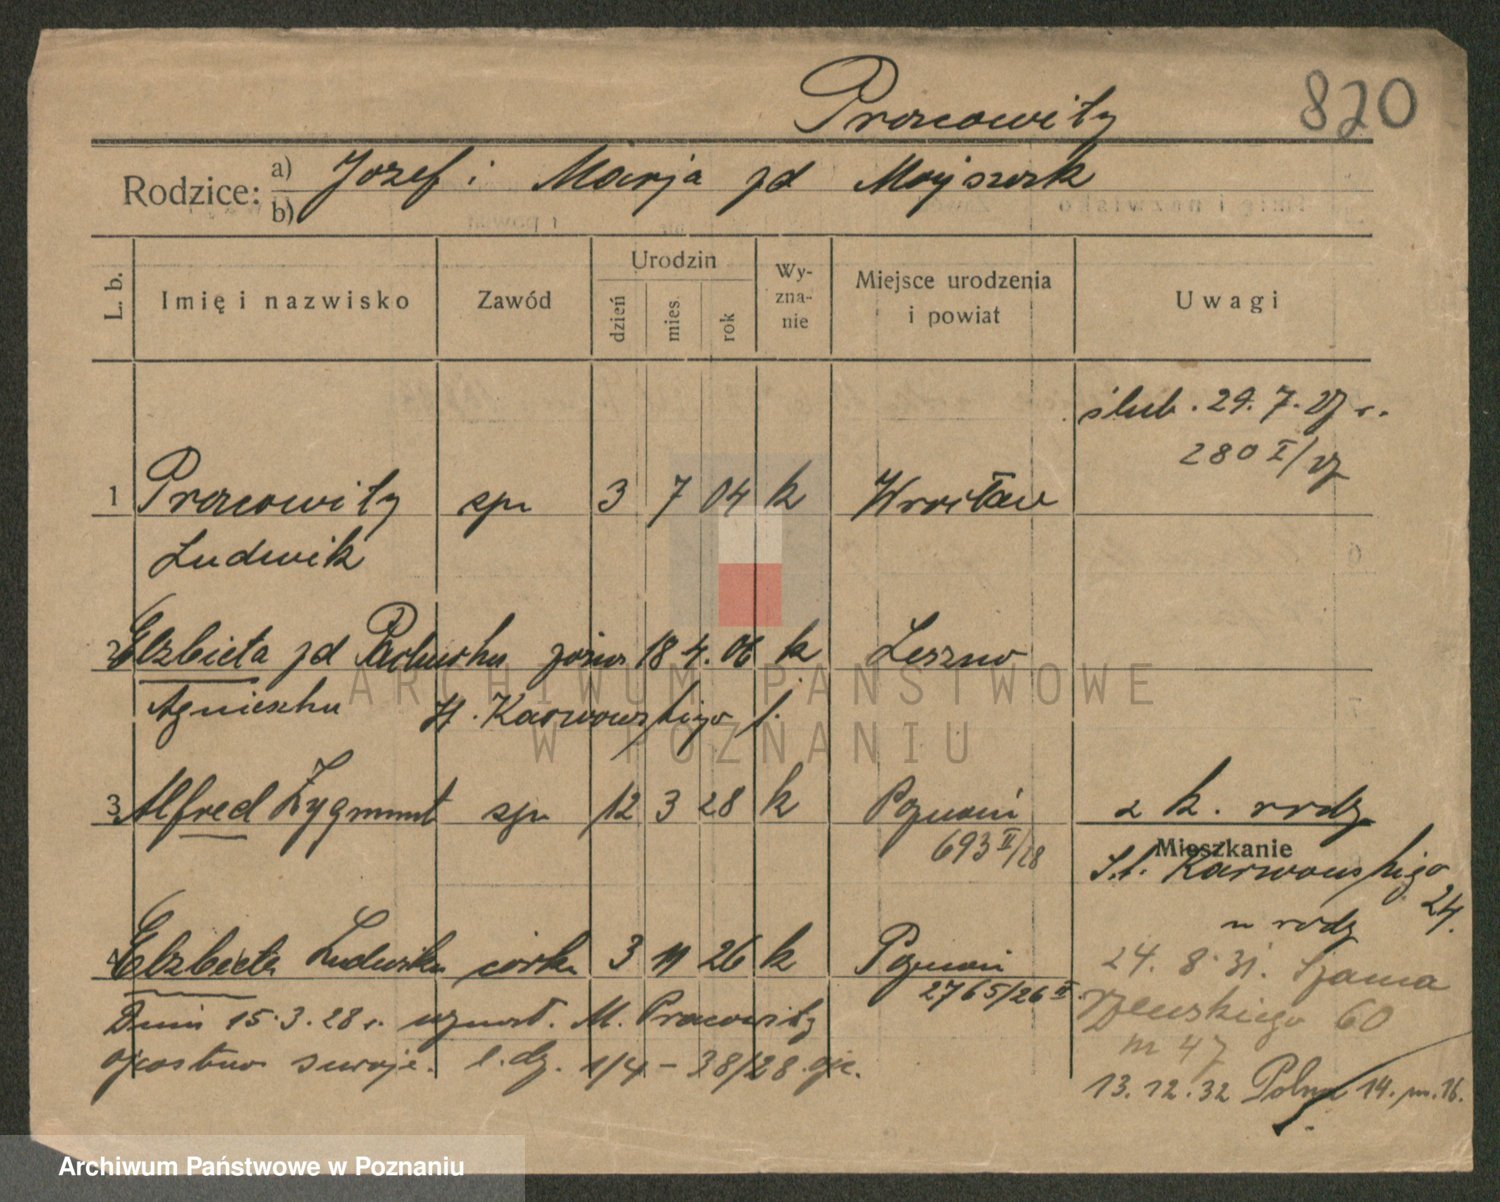 Pracowity
820
Rodzice: a) Józef i Marja zd Mojszezk
b)
L. b.
Imię i nazwisko
Zawód
Urodzin
dzień
mies.
rok
Wy-
zna-
nie
Miejsce urodzenia
i powiat
Uwagi
ślub. 29. 7. 27 r.
280 I/27
1 Pracowity 3 7 04 k Wrocław
Ludwik
2 Elzbieta zd 18 4. 06 k Leszno
Agnieszka St. Karwowskiego
3 Alfred Zygmunt 12 3 28 k Poznań z k. rodz
693 II/28
Mieszkanie
St. Karwowskiego
24.
u rodz
4 Elzbieta Ludwika córka 3 11 26 k Poznań
2765/26 II
24. 8. 31.
60
m 47
Dnia 15.3.28 r. uznał. M. Pracowity
ojcostwo swoje. l. dz. 1/4 - 38/28
13. 12. 32 Polna 14. m. 16.
ARCHIWUM PAŃSTWOWE
W POZNANIU
Archiwum Państwowe w Poznaniu